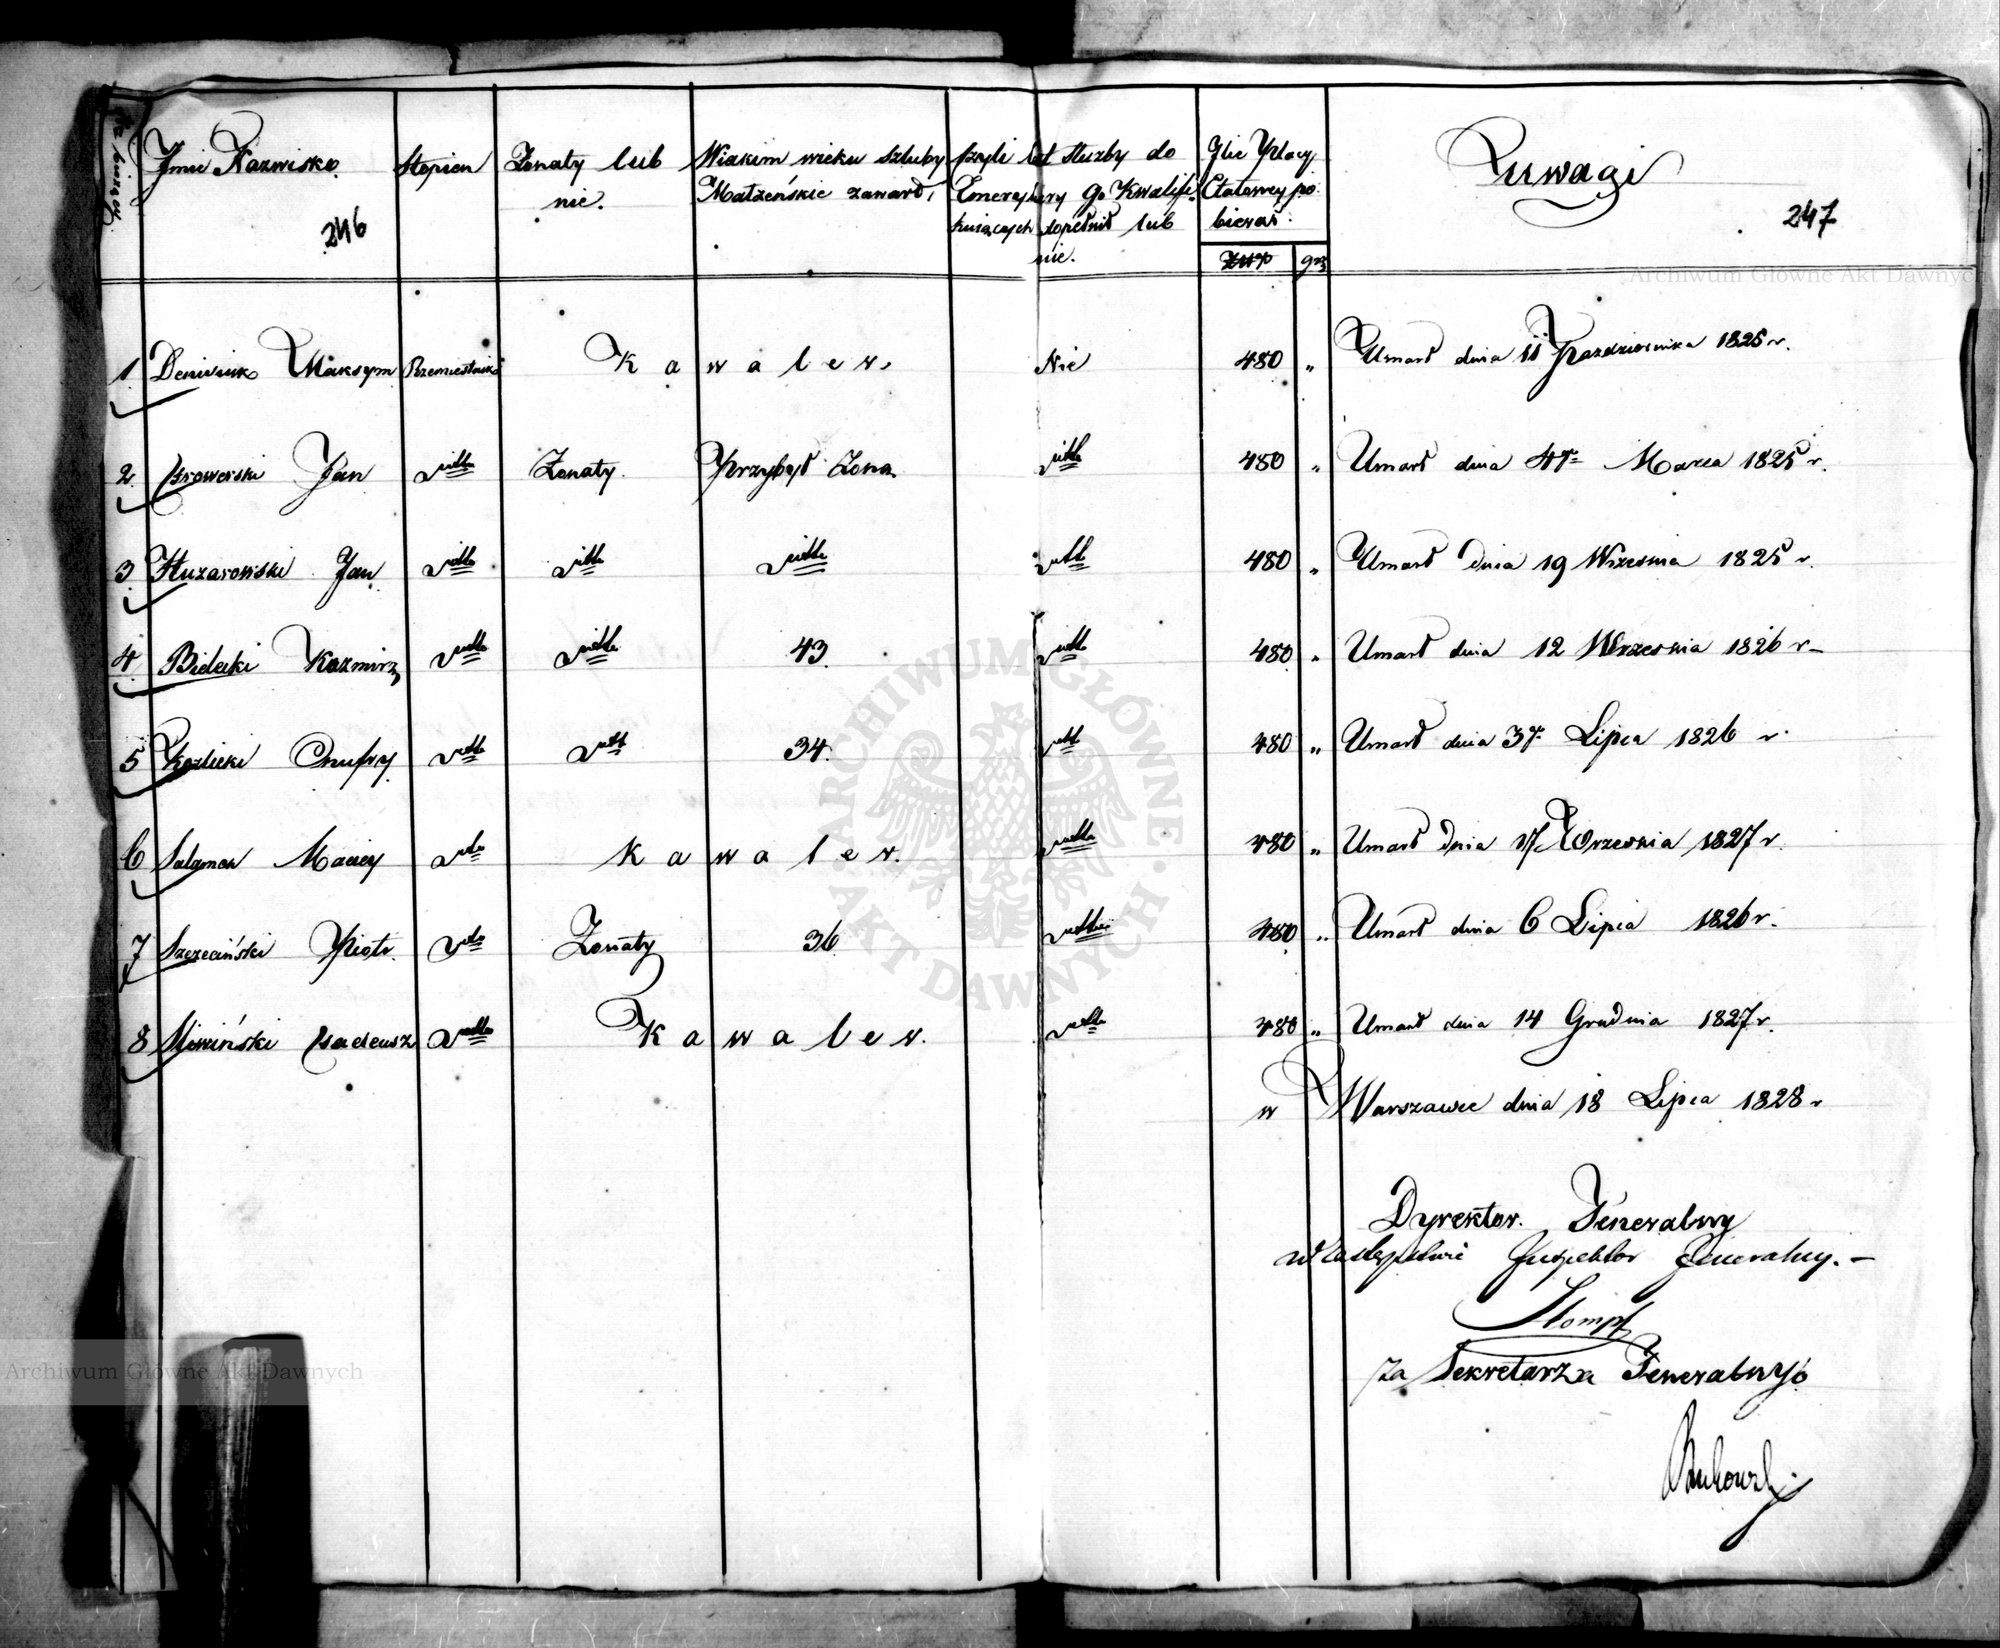 No bieżący
Imie Nazwisko. Stopień Żonaty lub Wiakim wieku szluby czyli lat służby do Ilie Płacy Uwagi
nie. Małżeńskie zawarł, Emerytury go Kwalifi- Etatowey po
246 kuiących dopełnił lub bierał: 247
nie. Złłp grz
1 Maksym Rzemieslnik Kawaler. Nie 480 „ Umarł dnia 11 Pazdziernika 1825 r.
2. Jan ditto Żonaty. Przybył Żoną ditto 480 „ Umarł dnia 4go Marca 1825 r.
3 Huzarowski Jan ditto ditto ditto ditto 480 „ Umarł dnia 19 Wrzesnia 1825 r.
4 Bielecki Kazmirz ditto ditto 43. ditto 480 „ Umarł dnia 12 Wrzesnia 1826 r
5 Kozlicki Onufry ditto ditto 34. ditto 480 „ Umarł dnia 3go Lipca 1826 r.
6 Salamon Maciey ditto Kawaler. ditto 480 „ Umarł dnia Wrzesnia 1827 r.
7 Szczeciński Piotr. ditto Żonaty 36 ditto 480 „ Umarł dnia 6 Lipca 1826 r.
8 Sliwiński Tadeusz ditto Kawaler. ditto 480 „ Umarł dnia 14 Grudnia 1827 r.
w Warszawie dnia 18 Lipca 1828 r
Dyrektor. Jeneralny
w zastępstwie Inspektor Jeneralny. –
Stompf
za Sekretarza Jeneralnyo
Archiwum Główne Akt Dawnych
Archiwum Główne Akt Dawnych
ARCHIWUM GŁÓWNE • AKT DAWNYCH •